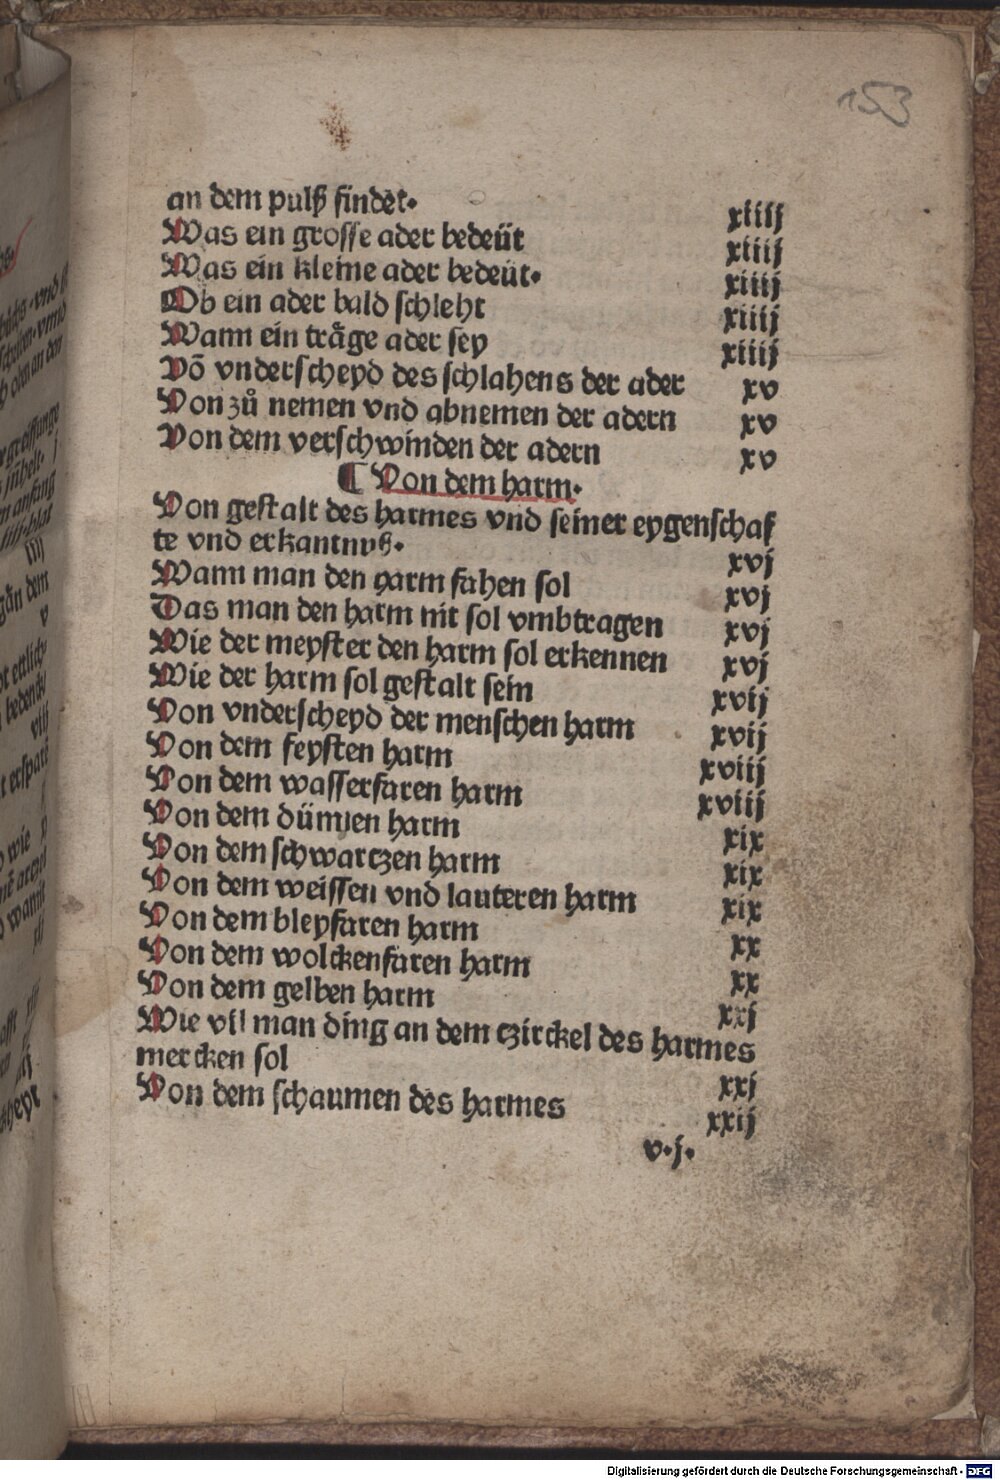 153
an dem pulß findet. xiiij
Was ein grosse ader bedeüt xiiij
Was ein kleine ader bedeüt. xiiij
Ob ein ader bald schleht xiiij
Wann ein träge ader sey xiiij
Võ vnderscheyd des schlahens der ader xv
Von zů nemen vnd abnemen der adern xv
Von dem verschwinden der adern xv
¶ Von dem harm.
Von gestalt des harmes vnd seiner eygenschaf
te vnd erkantnyß. xvj
Wann man den harm fahen sol xvj
Das man den harm nit sol vmbtragen xvj
Wie der meyster den harm sol erkennen xvj
Wie der harm sol gestalt sein xvij
Von vnderscheyd der menschen harm xvij
Von dem feysten harm xviij
Von dem wasserfaren harm xviij
Von dem dünnen harm xix
Von dem schwartzen harm xix
Von dem weissen vnd lauteren harm xix
Von dem bleyfaren harm xx
Von dem wolckenfaren harm xx
Von dem gelben harm xxj
Wie vil man ding an dem tzirckel des harmes
mercken sol xxj
Von dem schaumen des harmes xxij
v.j.
Digitalisierung gefördert durch die Deutsche Forschungsgemeinschaft - DFG